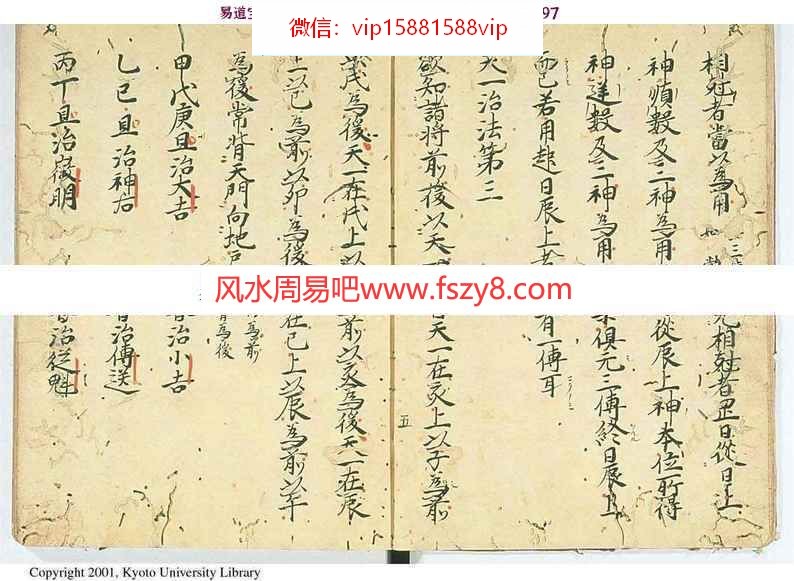 易道
97
微信：vip15881588vip
相尅者當以為用 相尅者 日從日上
神順數及二神為用 從辰上神本位所得
神逆數及二神為用 俱元三傳終日辰上
而已若用起日辰上者 有一傳耳
天一治法第三
欲知諸將前後以天一 天一在亥上以子為前
五
戌為後天一在戌上以 前以亥為後天一在辰
上以巳為前以卯為後 在巳上以辰為前以午
為後常背天門向地戶 為前
為後
甲戊庚旦治大吉 治小吉
乙己旦治神右 治傳送
丙丁旦治徵明 治從魁
风水周易吧www.fszy8.com
Copyright 2001, Kyoto University Library